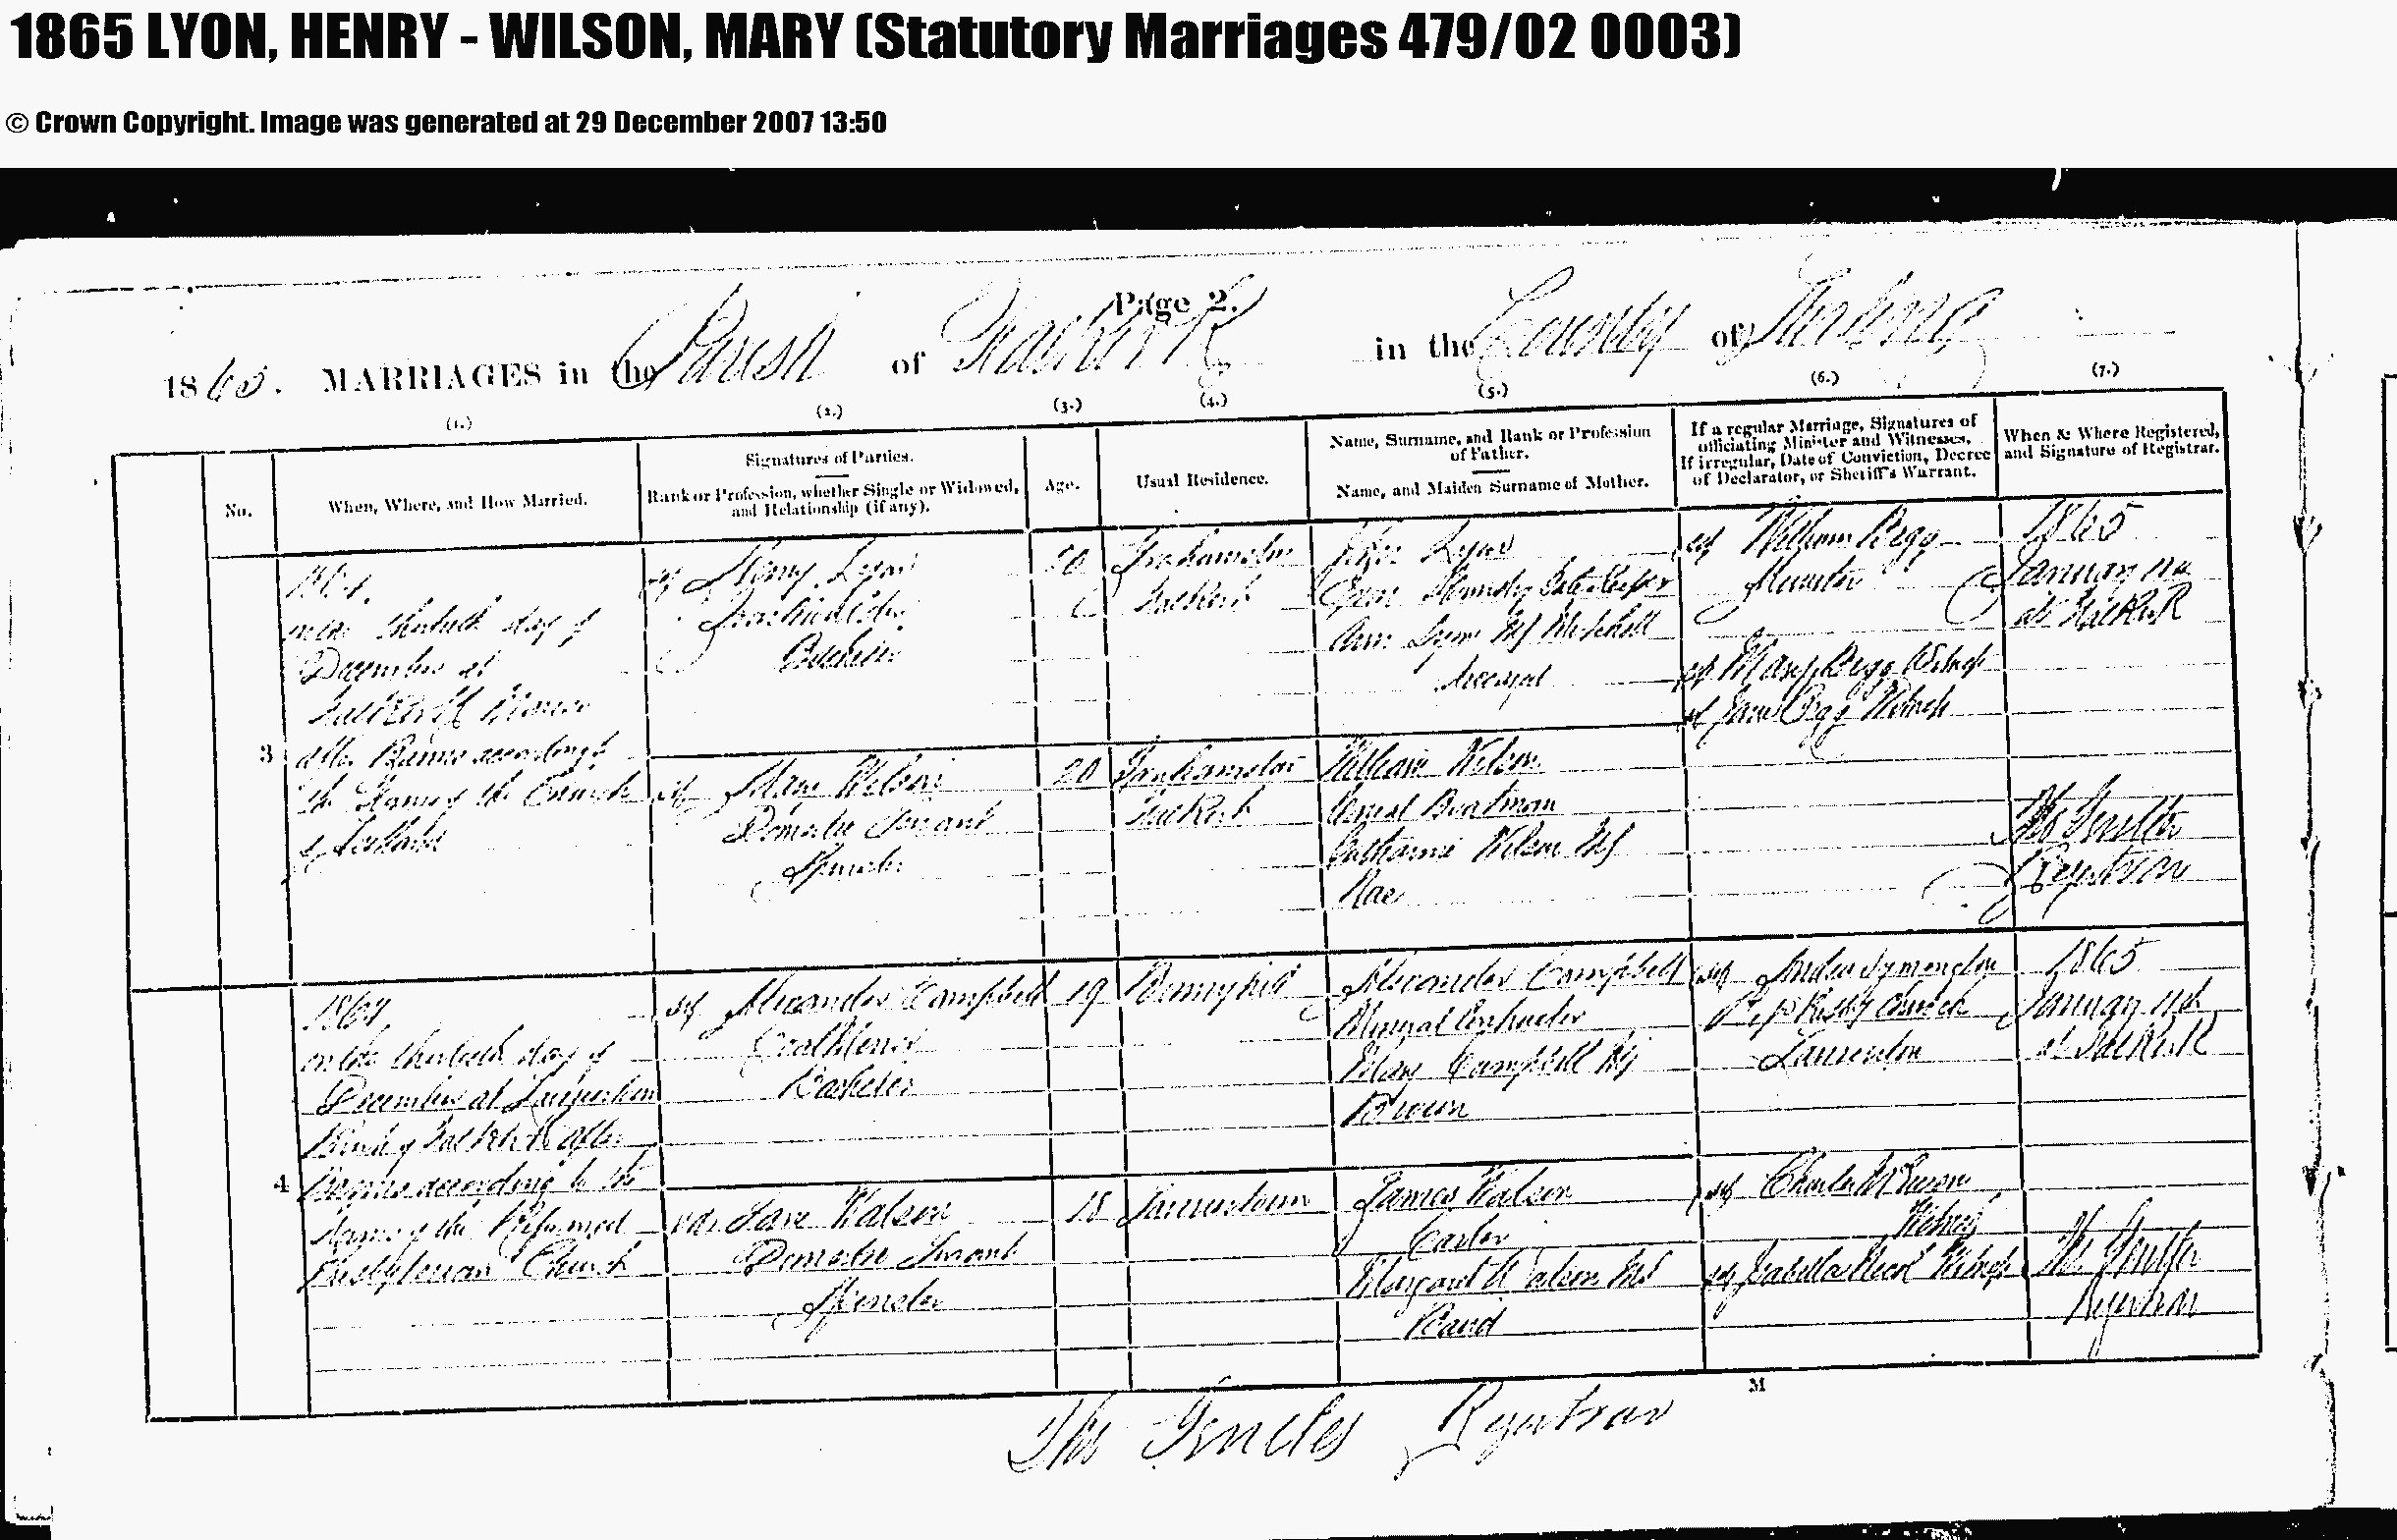 1865 LYON, HENRY - WILSON, MARY (Statutory Marriages 479/02 0003)
© Crown Copyright. Image was generated at 29 December 2007 13:50
Page 2.
1865. MARRIAGES in the Parish of Falkirk in the County of Stirling
(1.) (2.) (3.) (4.) (5.) (6.) (7.)
No.
When, Where, and How Married.
Signatures of Parties.
Rank or Profession, whether Single or Widowed, and Relationship (if any).
Age.
Usual Residence.
Name, Surname, and Rank or Profession of Father.
Name, and Maiden Surname of Mother.
If a regular Marriage, Signatures of officiating Minister and Witnesses.
If irregular, Date of Conviction, Decree of Declarator, or Sheriff's Warrant.
When & Where Registered, and Signature of Registrar.
3
on the thirtieth day of
December at
Falkirk Manse
after Banns according to
the Forms of the Church
of Scotland
Henry Lyon
Bachelor
20
Grahamston
Falkirk
John Lyon
Ann Lyon MS Mitchell
deceased
William Begg
Minister
Mary Begg Witness
Jane Begg Witness
1865
January 11th
at Falkirk
Mary Wilson
Domestic Servant
Spinster
20
Grahamston
Falkirk
William Wilson
Canal Boatman
Catharine Wilson MS
Rae
Registrar
4
1864
on the thirtieth day of
December at Laurieston
Parish of Falkirk after
Banns according to the
Forms of the Reformed
Presbyterian Church
Alexander Campbell
Coal Miner
Bachelor
19
Bonnyhill
Alexander Campbell
Mineral Contractor
Mary Campbell MS
Brown
Andrew Symington
Church
Laurieston
1865
January 11th
at Falkirk
Jane Watson
Domestic Servant
Spinster
18
Laurieston
James Watson
Carter
Margaret Watson MS
Baird
Charles
Witness
Isabella Witness
Registrar
M
Thos Registrar